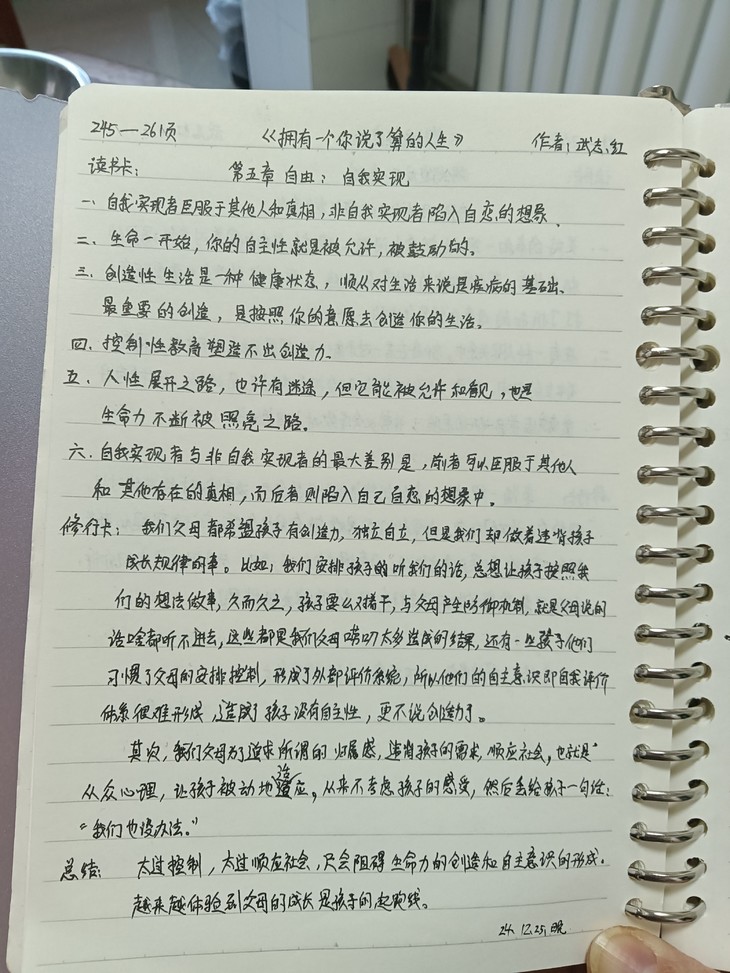 245—261页 《拥有一个你说了算的人生》 作者：武志红
读书卡： 第五章 自由：自我实现
一、自我实现者臣服于其他人和真相，非自我实现者陷入自恋的想象、
二、生命一开始，你的自主性就是被允许，被鼓励的。
三、创造性生活是一种健康状态，顺从对生活来说是疾病的基础、
最重要的创造，是按照你的意愿去创造你的生活。
四、控制性教育塑造不出创造力。
五、人性展开之路，也许有迷途，但它能被允许和看见，也是
生命力不断被照亮之路。
六、自我实现者与非自我实现者的最大差别是，前者可以臣服于其他人
和其他存在的真相，而后者则陷入自己自恋的想象中。
修行卡：我们父母都希望孩子有创造力，独立自立，但是我们却做着违背孩子
成长规律的事。比如：我们安排孩子的听我们的话，总想让孩子按照我
们的想法做事，久而久之，孩子要么对着干，与父母产生防御机制，就是父母说的
话啥都听不进去，这些都是我们父母唠叨太多造成的结果，还有一些孩子他们
习惯了父母的安排控制，形成了外部评价系统，所以他们的自主意识即自我评价
体系很难形成，造成了孩子没有自主性，更不说创造力了。
其次，我们父母为了追求所谓的归属感，违背孩子的需求，顺应社会，也就是
从众心理，让孩子被动地适应，从来不考虑孩子的感受，然后丢给孩子一句话：
“我们也没办法。”
总结：太过控制，太过顺应社会，只会阻碍生命力的创造和自主意识的形成。
越来越体验到父母的成长是孩子的起跑线。
24.12.25，晚